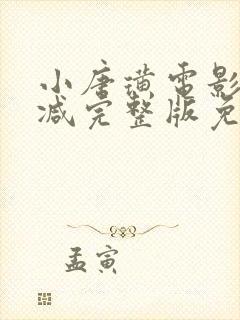 小唐璜电影
减完整版免
孟寅